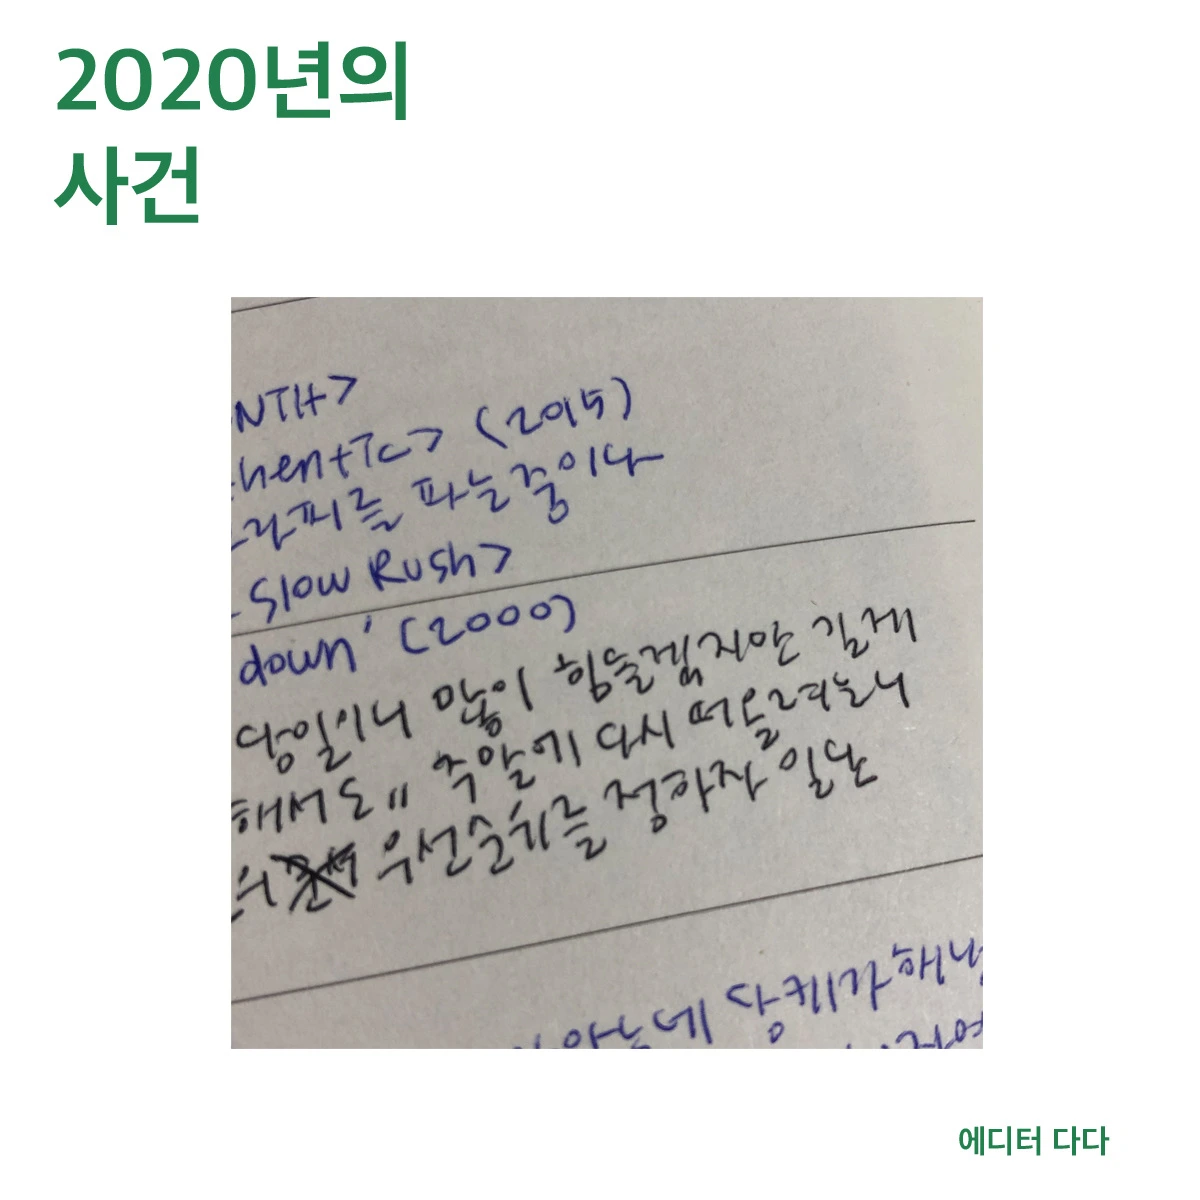 2020년의
사건
NTH>
hentic> (2015)
피를 파는 꿈이다
Slow Rush>
down' (2000)
당일이니 많이 힘들겠지만 길게
해서도 주말에 다시 떠올려느니
의 우선순위를 정하자 일단
상태가 해
에디터 다다